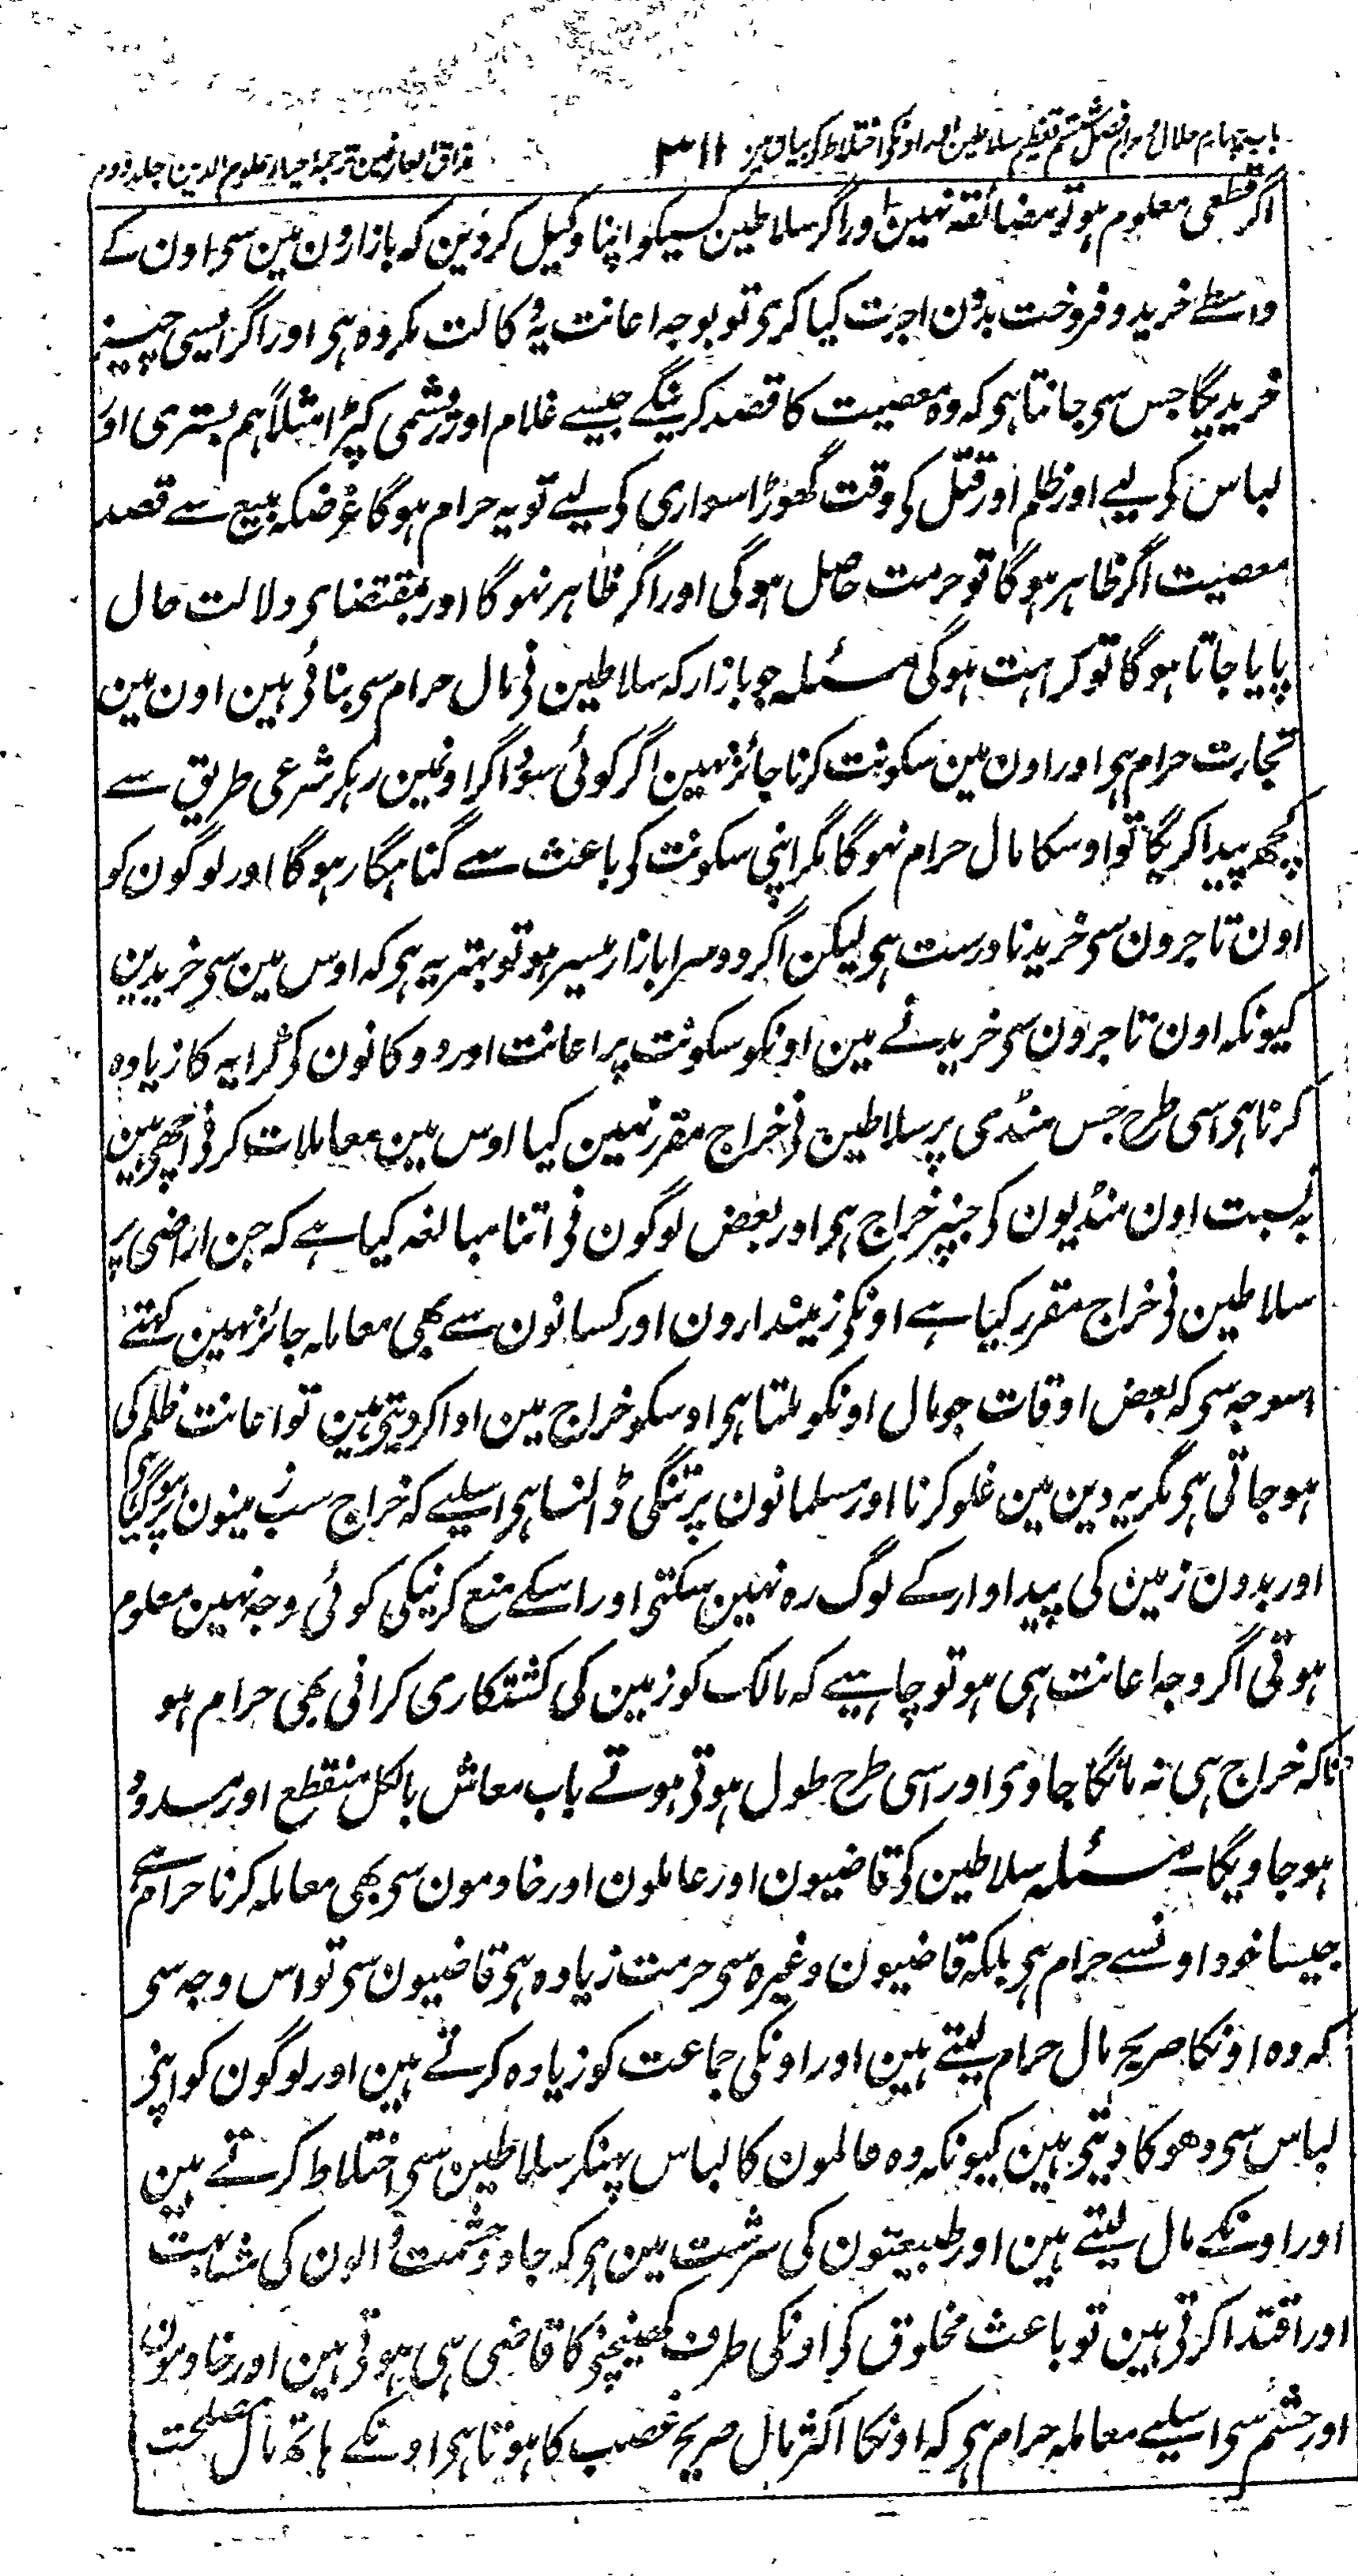 باب چہارم حلال و حرام فصل ششم تعظیم سلاطین اور اونکی اختلاط کی بیان مین ۳۱۱ مذاق العارفین ترجمہ احیاء علوم الدین جلد دوم
اگر قطعی معلوم ہو تو مضائقہ نہین اور اگر سلاطین کسیکو اپنا وکیل کر دین کہ بازارون مین سی اون کے
واسطے خرید و فروخت بدون اجرت کیا کری تو بوجہ اعانت یہ وکالت مکروہ ہی اور اگر ایسی چیز
خریدیگا جس سی جانتا ہی کہ وہ معصیت کا قصد کرینگے جیسے غلام اور ریشمی کپڑا مثلاً ہم بستری اور
لباس کی لیے اور ظلم اور قتل کی وقت گھوڑا سواری کی لیے تو یہ حرام ہوگا غرضکہ بیع سے قصد
معصیت اگر ظاہر ہوگا تو حرمت حاصل ہوگی اور اگر ظاہر نہوگا اور بمقتضای دلالت حال
پایا جاتا ہوگا تو کراہت ہوگی مسئلہ جو بازار کہ سلاطین نی مال حرام سی بنائی ہین اون مین
تجارت حرام ہی اور اون مین سکونت کرنا جائز نہین اگر کوئی سوداگر اونمین رہکر شرعی طریق سے
کچھ پیدا کریگا تو اوسکا مال حرام نہوگا مگر اپنی سکونت کی باعث سے گناہگار ہوگا اور لوگون کو
اون تاجرون سی خریدنا درست ہی لیکن اگر دوسرا بازار میسر ہو تو بہتر یہ ہی کہ اوس مین سی خریدین
کیونکہ اون تاجرون سی خریدنے مین اونکو سکونت پر اعانت اور دوکانون کی کرایہ کا زیادہ
کرنا ہی اسی طرح جس منڈی پر سلاطین نی خراج مقرر نہین کیا اوس مین معاملات کرنی اچھی ہین
بہ نسبت اون منڈیون کی جنپر خراج ہی اور بعض لوگون نی اتنا مبالغہ کیا ہے کہ جن اراضی پر
سلاطین نی خراج مقرر کیا ہے اونکی زمیندارون اور کسانون سے بھی معاملہ جائز نہین کہتے
اسوجہ سی کہ بعض اوقات جو مال اونکو ملتا ہی اوسکو خراج مین ادا کر دیتی ہین تو اعانت ظلم کی
ہو جاتی ہی مگر یہ دین مین غلو کرنا اور مسلمانون پر تنگی ڈالنا ہی اسلیے کہ خراج سب زمینون پر ہو گیا ہی
اور بدون زمین کی پیداوار کے لوگ رہ نہین سکتی اور اسکے منع کرنیکی کوئی وجہ نہین معلوم
ہوتی اگر وجہ اعانت ہی ہو تو چاہیے کہ مالک کو زمین کی کشتکاری کرانی بھی حرام ہو
تاکہ خراج ہی نہ مانگا جاوی اور اسی طرح طول ہوتی ہوتے باب معاش بالکل منقطع اور مسدود
ہو جاویگا مسئلہ سلاطین کی قاضیون اور عاملون اور خادمون سی بھی معاملہ کرنا حرام ہے
جیسا خود اونسے حرام ہی بلکہ قاضیون وغیرہ سی حرمت زیادہ ہی قاضیون سی تو اس وجہ سی
کہ وہ اونکا صریح مال حرام لیتے ہین اور اونکی جماعت کو زیادہ کرتے ہین اور لوگون کو اپنی
لباس سی دھوکا دیتی ہین کیونکہ وہ عالمون کا لباس پہنکر سلاطین سی اختلاط کرتے ہین
اور اونکے مال لیتے ہین اور طبیعتون کی سرشت مین ہی کہ جاہ و حشمت والون کی مشابہت
اور اقتدا کرتی ہین تو باعث مخلوق کی اونکی طرف کھینچنی کا قاضی ہی ہوتی ہین اور خادمون
اور حشم سی اسلیے معاملہ حرام ہی کہ اونکا اکثر مال صریح غصب کا ہوتا ہی اونکے ہاتھ مال مصلحت